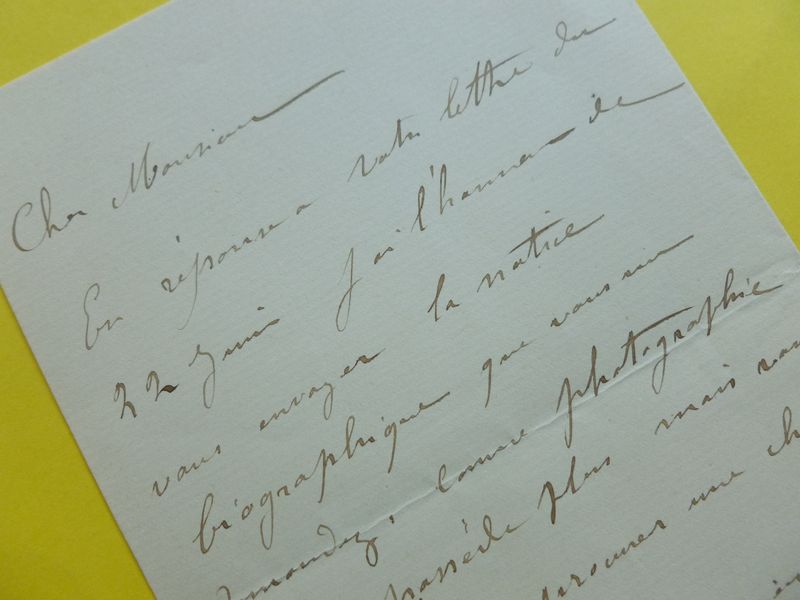 Cher Monsieur
En réponse a votre lettre du
22 Juin j'ai l'honneur de
vous envoyer la notice
biographique que vous me
demandez, comme photographie
possède plus mais vous
procurer une